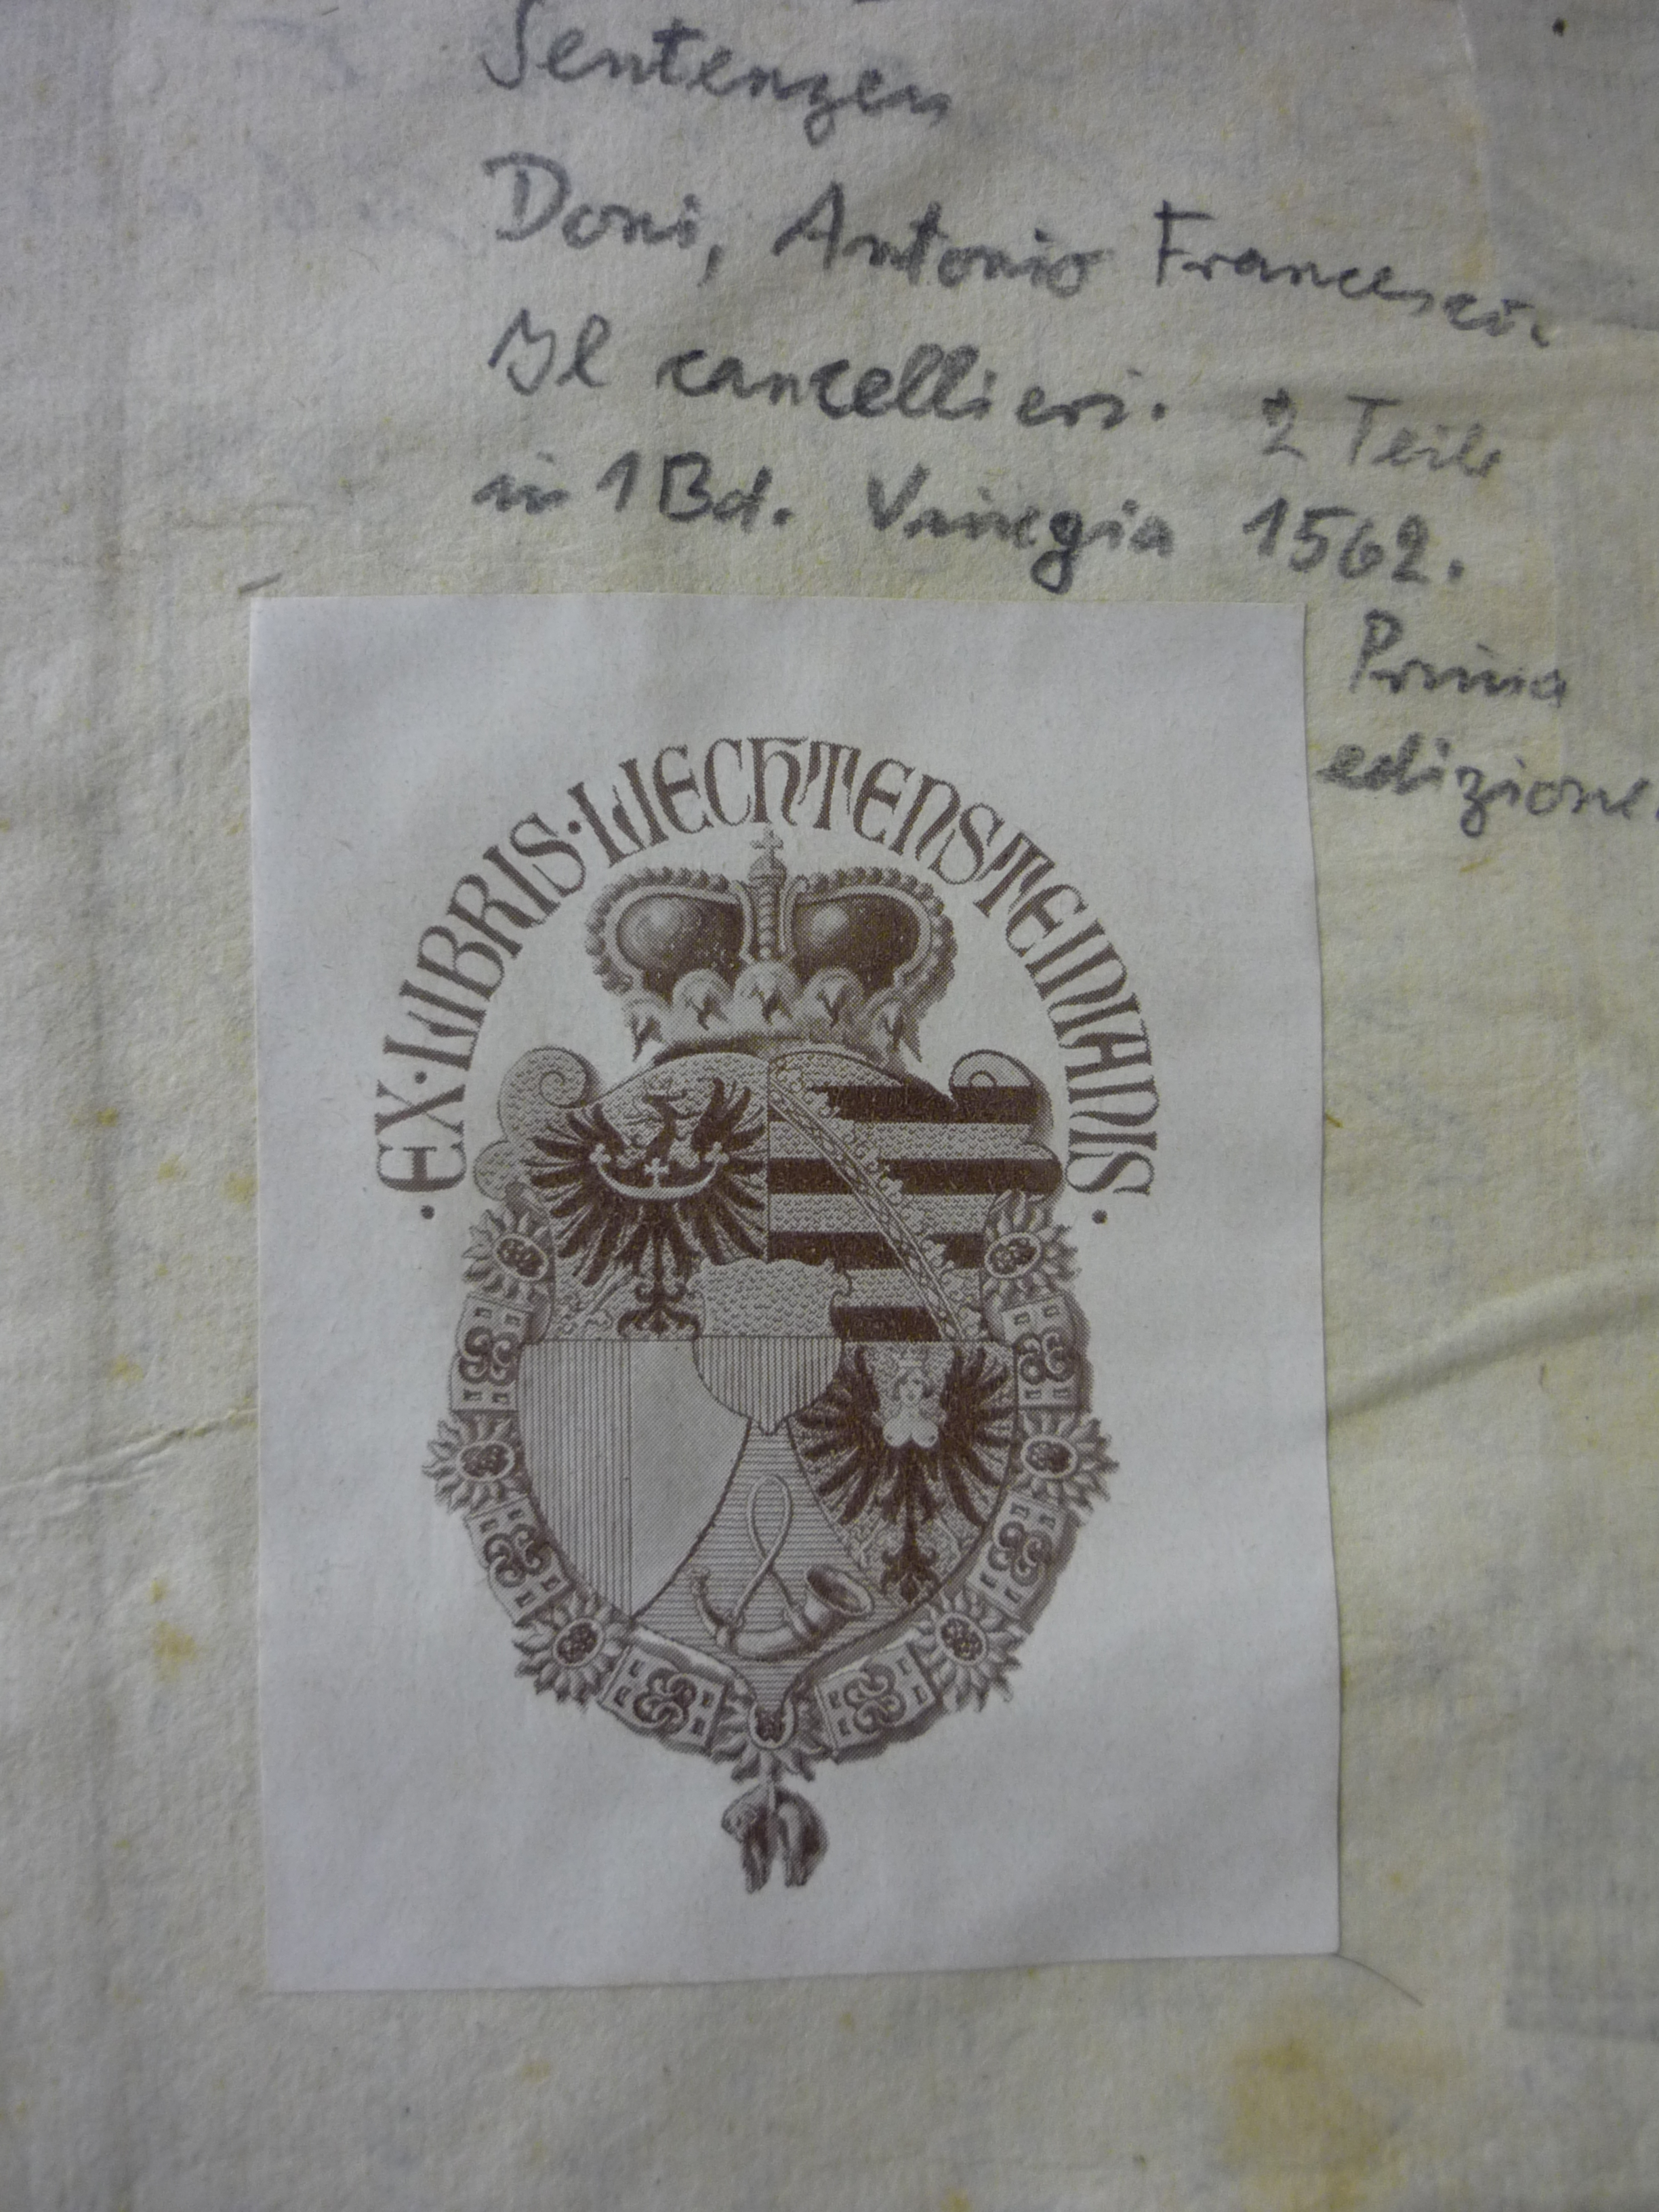 Sentenzen
Doni, Antonio Francesci.
Il cancellieri. 2 Teile
in 1 Bd. Vinegia 1562.
Prima
edizione.
·EX·LIBRIS·LIECHTENSTEINIANIS·